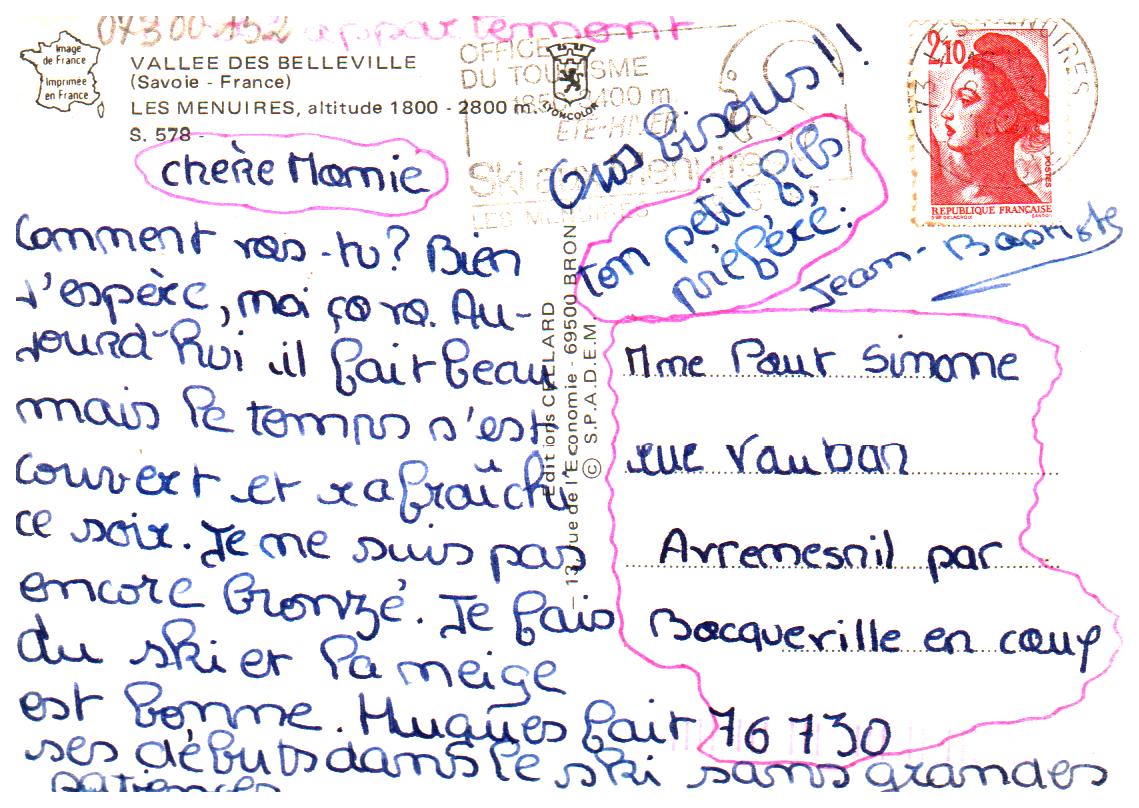 07300152 appartement
Image
de France
Imprimée
en France
VALLEE DES BELLEVILLE
(Savoie - France)
LES MENUIRES, altitude 1800 - 2800 m.
S. 578 -
LYONCOLOR
OFFICE
DU TOURISME
400 m.
ETE-HIVER
Ski aux menuires
LES MENUIRES
73 LES MENUIRES
2,10
POSTES
REPUBLIQUE FRANÇAISE
chère Mamie
Comment vas-tu? Bien
j'espère, moi ça va. Au-
jourd'hui il fait beau
mais le temps s'est
couvert et rafraîchi
ce soir. Je ne suis pas
encore bronzé. Je fais
du ski et la neige
est bonne. Hugues fait
ses débuts dans le ski sans grandes
patiences
Gros bisous!!
ton petit fils
préféré:
Jean-Baptiste
Editions CHELARD
- 13, rue de l'Economie - 69500 BRON
© S.P.A.D.E.M.
Mme Paut Simone
rue Vauban
Avremesnil par
Bacqueville en caux
76 730